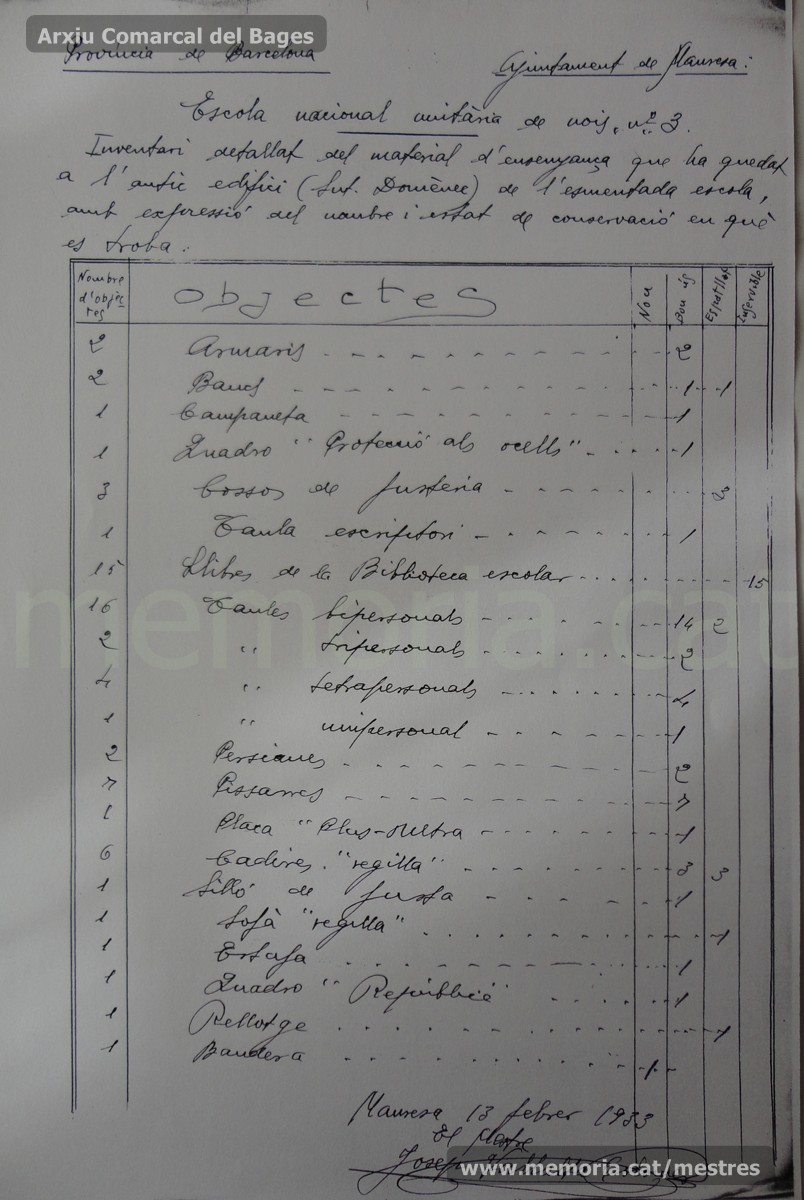 Arxiu Comarcal del Bages
Provincia de Barcelona Ajuntament de Manresa:
Escola nacional unitària de nois, nº 3.
Inventari detallat del material d'ensenyança que ha quedat
a l'antic edifici (Snt. Domènec) de l'esmentada escola,
amb expressió del nombre i estat de conservació en què
es troba:
Nombre d'objectes Objectes Nou Bon ús Espatllat Inservible
2 Armaris 2
2 Bancs 1 1
1 Campaneta 1
1 Quadro "Protecció als ocells" 1
3 Cossos de fusteria 3
1 Taula escriptori 1
15 Llibres de la Biblioteca escolar 15
16 Taules bipersonals 14 2
2 " tripersonals 2
4 " tetrapersonals 4
1 " unipersonal 1
2 Persianes 2
7 Pissarres 7
1 Placa "Plus-Ultra 1
6 Cadires "regilla" 3 3
1 Silló de fusta 1
1 Sofà "regilla" 1
1 Estufa 1
1 Quadro "República" 1
1 Rellotge 1
1 Bandera 1
Manresa 13 febrer 1933
El Mestre
Josep
memoria.cat
www.memoria.cat/mestres